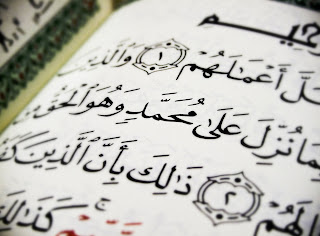 حِيمِ
ـلَّ أَعْمَـٰلَهُمْ ١ وَٱلَّذِينَ
بِمَا نُزِّلَ عَلَىٰ مُحَمَّدٍ وَهُوَ ٱلْحَقُّ
ـالَهُمْ ٢ ذَٰلِكَ بِأَنَّ ٱلَّذِينَ كَفَـ
كَذَٰلِكَ